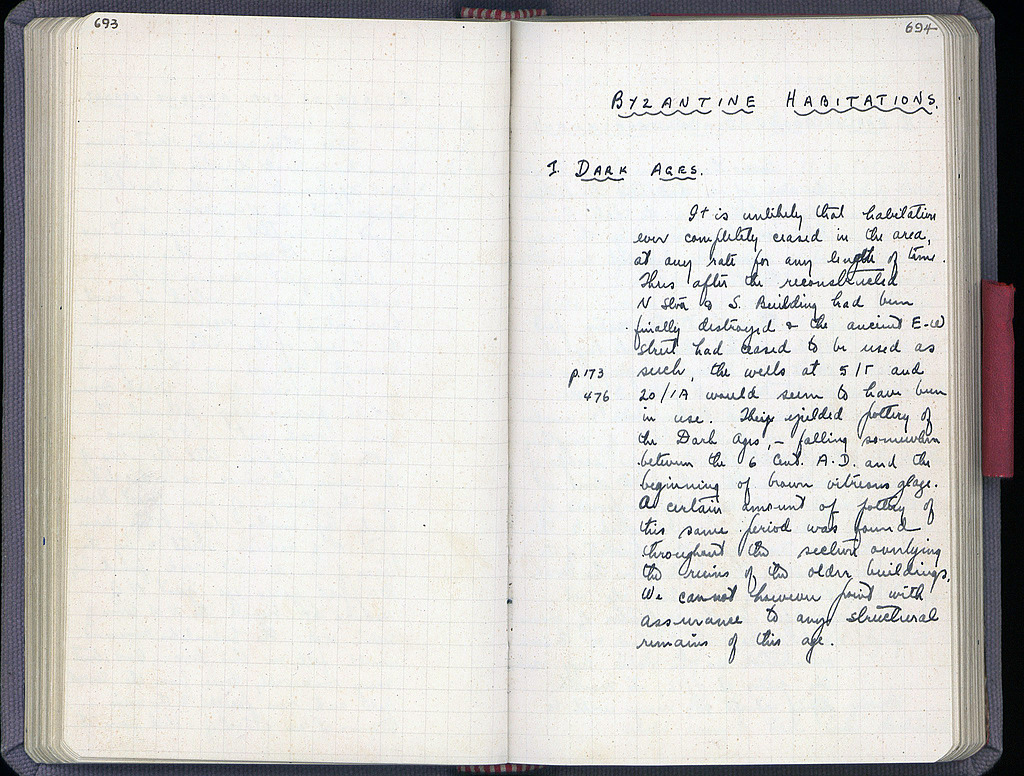 693
694
BYZANTINE HABITATIONS.
I DARK AGES.
It is unlikely that habitation
ever completely ceased in the area,
at any rate for any length of time.
Thus after the reconstructed
N Stoa & S. Building had been
finally destroyed & the ancient E-W
street had ceased to be used as
p.173 such, the wells at 5/Γ and
476 20/ΙΑ would seem to have been
in use. They yielded pottery of
the Dark Ages, – falling somewhere
between the 6 Cent. A.D. and the
beginning of brown vitreous glaze.
A certain amount of pottery of
this same period was found
throughout the section overlying
the ruins of the older buildings.
We cannot however point with
assurance to any structural
remains of this age.